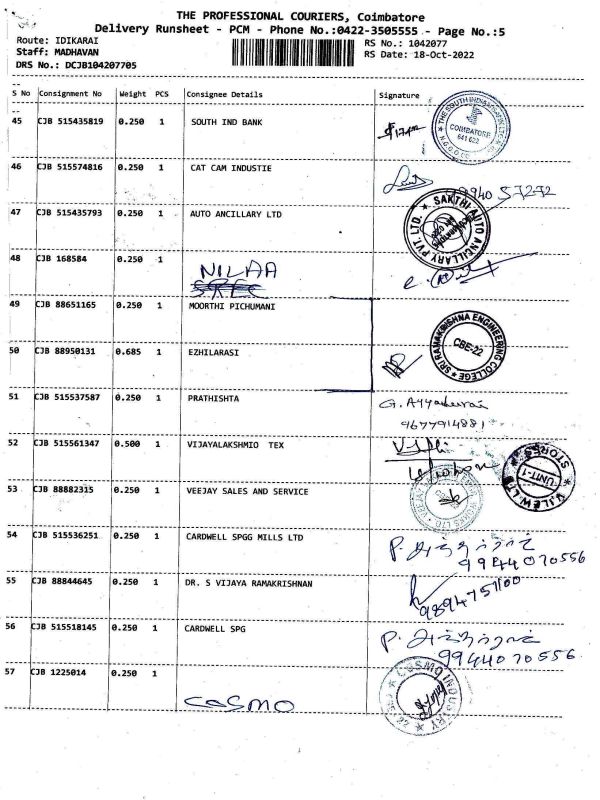 THE PROFESSIONAL COURIERS, Coimbatore
Delivery Runsheet - PCM - Phone No.:0422-3505555 - Page No.:5
Route: IDIKARAI RS No.: 1042077
Staff: MADHAVAN RS Date: 18-Oct-2022
DRS No.: DCJB104207705
S No Consignment No Weight PCS Consignee Details Signature
45 CJB 515435819 0.250 1 SOUTH IND BANK
COIMBATORE
641 022
46 CJB 515574816 0.250 1 CAT CAM INDUSTIE
9940 57272
47 CJB 515435793 0.250 1 AUTO ANCILLARY LTD
SAKTHI AUTO ANCILLARY PVT. LTD.
48 CJB 168584 0.250 1
NILAA
49 CJB 88651165 0.250 1 MOORTHI PICHUMANI
SRI RAMAKRISHNA ENGINEERING COLLEGE
CBE-22
50 CJB 88950131 0.685 1 EZHILARASI
51 CJB 515537587 0.250 1 PRATHISHTA
9677914881
52 CJB 515561347 0.500 1 VIJAYALAKSHMIO TEX
STORES
UNIT-1
53 CJB 88882315 0.250 1 VEEJAY SALES AND SERVICE
54 CJB 515536251 0.250 1 CARDWELL SPGG MILLS LTD
9944070556
55 CJB 88844645 0.250 1 DR. S VIJAYA RAMAKRISHNAN
9894757100
56 CJB 515518145 0.250 1 CARDWELL SPG
9944070556
57 CJB 1225014 0.250 1
COSMO
COSMO INDUSTRY